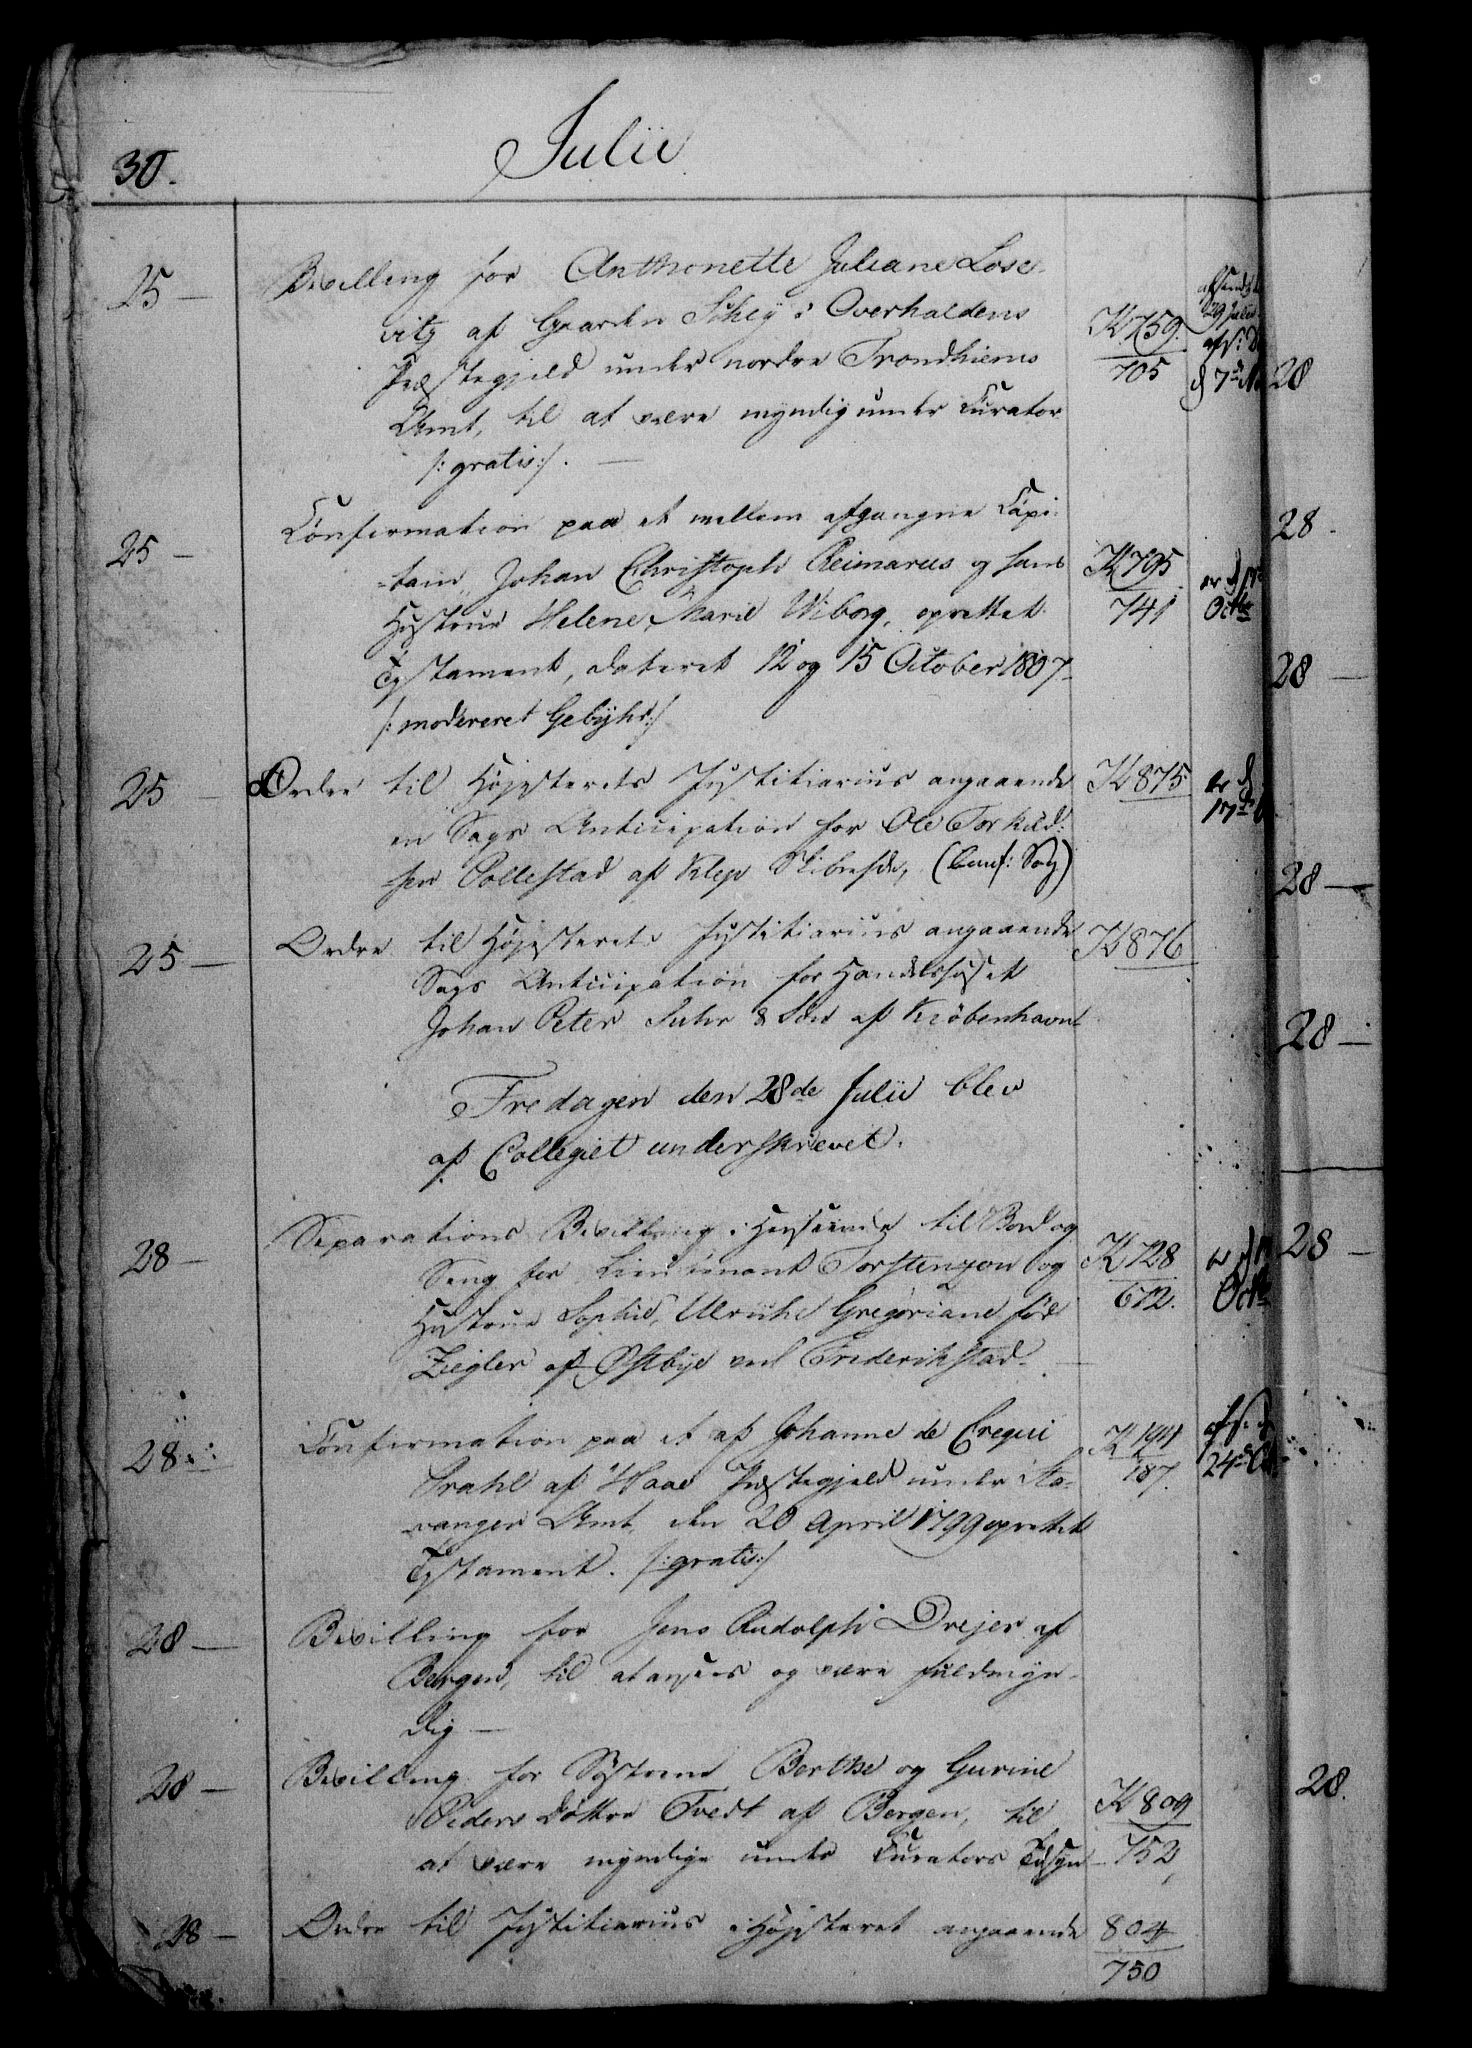 30.
Julii
25 —
Bevilling for Anthonette Juliane Lose-
vitz af Gaarden Schey i Overhaldens
Præstegjeld under nordre Trondhiems
Amt, til at være myndig under Curator
/: gratis :/. —
K 759.
705
29 Julii
25 —
Confirmation paa et mellem afgangne Capi-
tain Johan Christoph Reimarus og hans
Hustrue Helene Marie Wiborg, oprettet
Testament, dateret 12 og 15 October 1807 —
/: modereret Gebyhr :/
K 795
741
25 —
Ordre til Højesterets Justitiarius angaaende
en Sags Anticipation for Ole Torkild-
sen Pollestad af Klep Skibrede,
K 875
25 —
Ordre til Højesterets Justitiarius angaaende
Sags Anticipation for Handelshuset
Johan Peter Suhr & Søn af Kiøbenhavn
K 876
Fredagen den 28de Julii blev
af Collegiet underskrevet.
28 —
Separations Bevilling i Henseende til Bord og
Seng for Lieutenant Torstenson og
Hustrue Sophie, Ulriche Gregoriane fød
Ziegler af Østbye ved Frederikstad —
K 728
672.
28
Confirmation paa et af Johanne de Crequi
Strahl af Haae Præstegjeld under Sta-
vanger Amt, den 20 April 1799 oprettet
Testament. /: gratis :/
187.
28 —
Bevilling for Jens Rudolph Drejer af
Bergen, til at ansees og være fuldmyn-
dig —
28 —
Bevilling for Søstrene Berthe og Gurine
Peders Døttre Tvedt af Bergen, til
at være myndige under Curators Tilsyn —
K 809
752,
28 —
Ordre til Justitiarius i Højesteret angaaende
804
750
28
28 -
28 —
28 —
28 —
28 —
28.